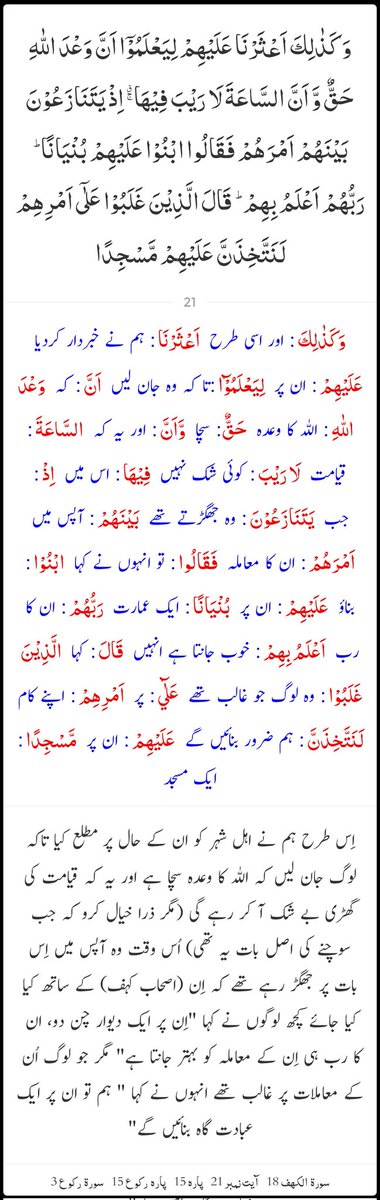 وَكَذٰلِكَ اَعْثَرْنَا عَلَيْهِمْ لِيَعْلَمُوْٓا اَنَّ وَعْدَ اللّٰهِ
حَقٌّ وَّ اَنَّ السَّاعَةَ لَا رَيْبَ فِيْهَا ۚ اِذْ يَتَنَازَعُوْنَ
بَيْنَهُمْ اَمْرَهُمْ فَقَالُوا ابْنُوْا عَلَيْهِمْ بُنْيَانًا ؕ
رَبُّهُمْ اَعْلَمُ بِهِمْ ؕ قَالَ الَّذِيْنَ غَلَبُوْا عَلٰٓى اَمْرِهِمْ
لَنَتَّخِذَنَّ عَلَيْهِمْ مَّسْجِدًا
21
وَكَذٰلِكَ : اور اسی طرح اَعْثَرْنَا : ہم نے خبردار کردیا
عَلَيْهِمْ : ان پر لِيَعْلَمُوْٓا : تا کہ وہ جان لیں اَنَّ : کہ وَعْدَ
اللّٰهِ : اللہ کا وعدہ حَقٌّ : سچا وَّاَنَّ : اور یہ کہ السَّاعَةَ :
قیامت لَا رَيْبَ : کوئی شک نہیں فِيْهَا : اس میں اِذْ :
جب يَتَنَازَعُوْنَ : وہ جھگڑتے تھے بَيْنَهُمْ : آپس میں
اَمْرَهُمْ : ان کا معاملہ فَقَالُوا : تو انہوں نے کہا ابْنُوْا :
بناؤ عَلَيْهِمْ : ان پر بُنْيَانًا : ایک عمارت رَبُّهُمْ : ان کا
رب اَعْلَمُ بِهِمْ : خوب جانتا ہے انہیں قَالَ : کہا الَّذِيْنَ
غَلَبُوْا : وہ لوگ جو غالب تھے عَلٰٓي : پر اَمْرِهِمْ : اپنے کام
لَنَتَّخِذَنَّ : ہم ضرور بنائیں گے عَلَيْهِمْ : ان پر مَّسْجِدًا :
ایک مسجد
اِس طرح ہم نے اہل شہر کو ان کے حال پر مطلع کیا تاکہ
لوگ جان لیں کہ اللہ کا وعدہ سچا ہے اور یہ کہ قیامت کی
گھڑی بے شک آ کر رہے گی (مگر ذرا خیال کرو کہ جب
سوچنے کی اصل بات یہ تھی) اُس وقت وہ آپس میں اِس
بات پر جھگڑ رہے تھے کہ اِن (اصحاب کہف) کے ساتھ کیا
کیا جائے کچھ لوگوں نے کہا "اِن پر ایک دیوار چن دو، ان
کا رب ہی اِن کے معاملہ کو بہتر جانتا ہے" مگر جو لوگ اُن
کے معاملات پر غالب تھے انہوں نے کہا " ہم تو ان پر ایک
عبادت گاہ بنائیں گے"
سورۃ الکھف 18 آیت نمبر 21 پارہ 15 پارہ رکوع 15 سورۃ رکوع 3